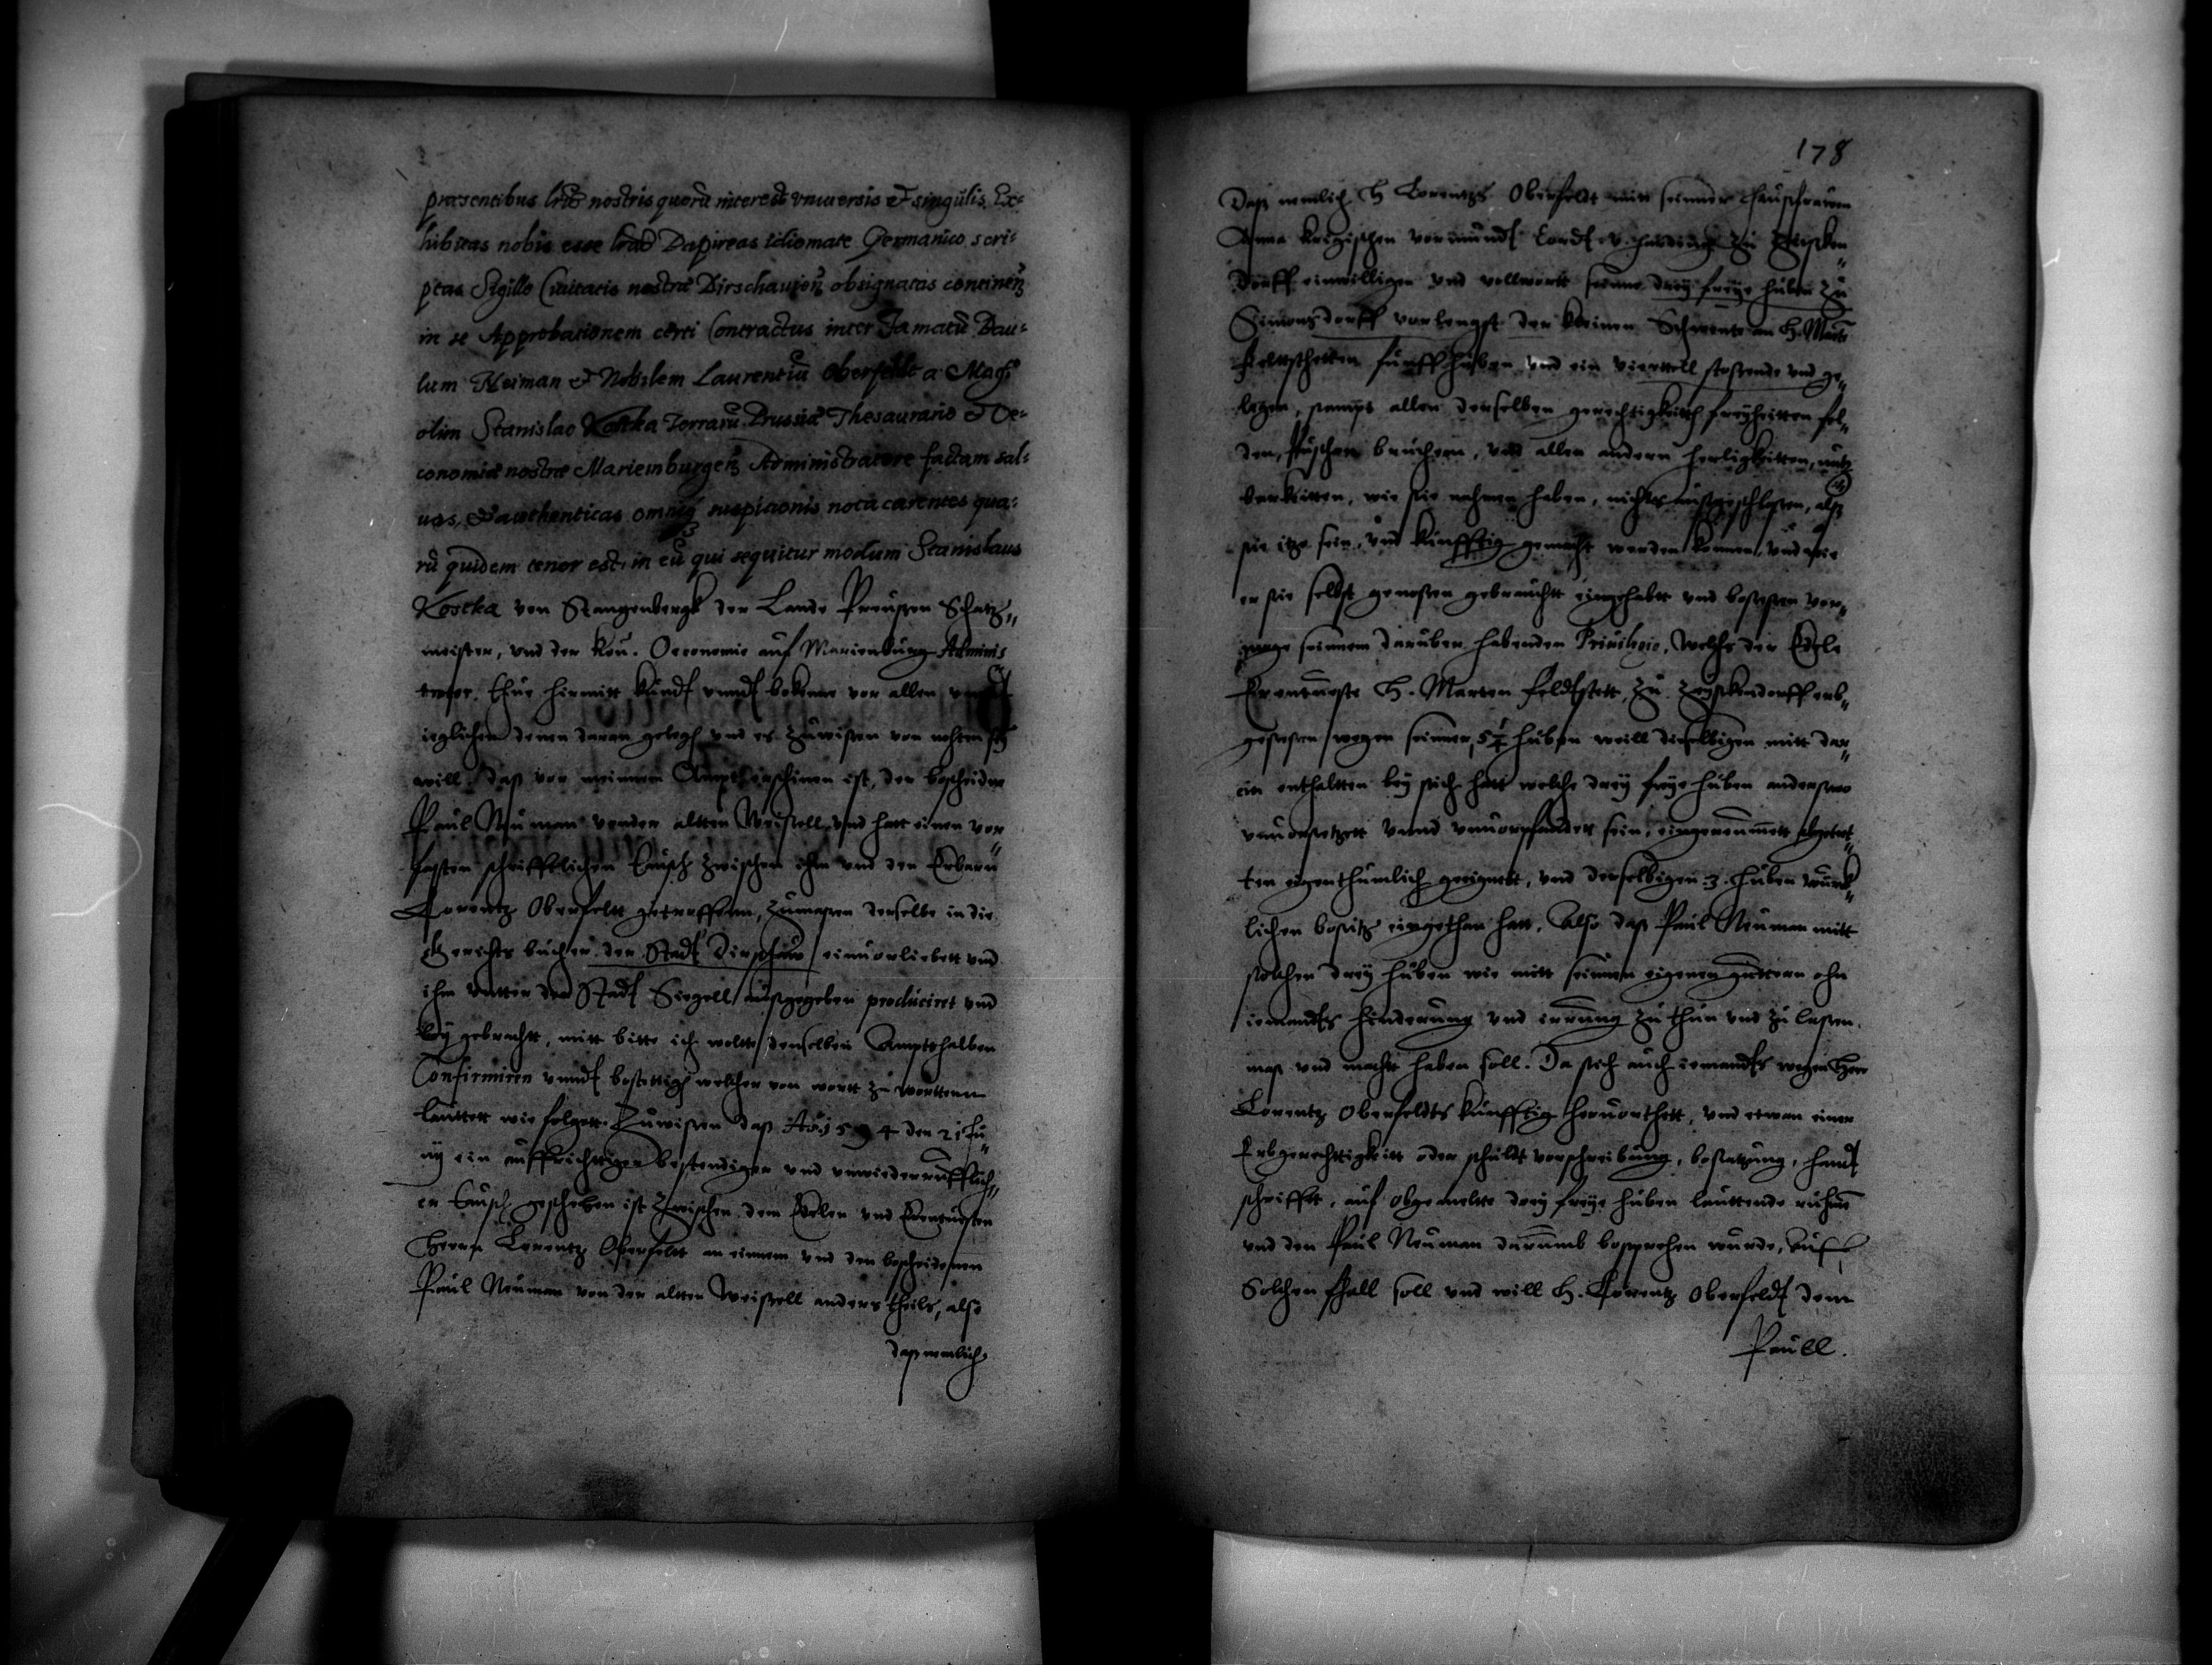 præsentibus lris nostris quorū interest vniuersis et singulis Ex-
hibitas nobis esse lras Papireas idiomate Germanico scri-
ptas Sigillo Ciuitatis nostræ Dirschauien obsignatas continen
in se Approbationem certi Contractus inter Famatū Pau-
lum Neiman et Nobilem Laurentiū Oberfeldt a Magco
olim Stanislao Kostka Terrarū Prussiæ Thesaurario et Oe-
conomiæ nostræ Mariemburgen Administratore factam sal-
uas, et authenticas omniq suspicionis nota carentes qua-
rū quidem tenor est in eū qui sequitur modum Stanislaus
Kostka von Stangenbergk der Lande Preussen Schatz-
meister, vnd der Kön. Oeconomie auf Marienburg Adminis
trator. Thue hiermitt kundt vnndt bekenne vor allen vnd
ieglichen denen daran gelegen vnd es zuwissen von nohten
will. daß vor meinem Ampt erschinen ist, der bescheidne
Paul Neuman vonder altten Weissell, vnd hatt einen vor
fasten schrifftlichen tausch zwischen ihm vnd den Erbarn
Lorentz Oberfelt getroffenn, zumassen derselbe in die
gerichts bücher der Stadt Dirschaw einuorliebett vnd
ihm vntter der Stadt Siegell außgegeben produciret vnd
bey gebracht, mitt bitte ich wolte denselben Amptshalben
Confirmiren vnndt bestettigen welcher von wortt zu worttenn
lauttett wie folgett. Zuwissen daß Ao 1594 den 21 Ju
nij ein auffrichtiger bestendiger vnd vnwiederrufflich-
er tausch geschehen ist zwischen dem Edelen vnd Ernuesten
Herrn Lorentz Oberfeltt an einnem vnd den bescheidenen
Paul Neuman von der altten Weissell anders theils, also
daß nemlich
178
Daß nemlich H Lorentz Oberfeldt mitt seinner Haußfrawen
Anna Krigischen vormundt zu
dorff einwilligen vnd vollwortt seinne drey freye huben zu
Simonsdorff vorlengst der kleinen Schwente an H. Marti
fünff huben vnd ein vierttell stossende vnd ge-
legen, sampt allen derselben gerechtigkeitten freyheitten fel-
den, Püschen bruchern, vnd allen andern herligkeitten, nutz
barkeitten, wie sie nahmen haben, nichts außgeschlossen, alß
sie itzo sein, vnd künfftig gemacht werden konnen, vnd wie
er sie selbst genossen gebrauchtt eingehabtt vnd besessen vor-
möge seinnem darüber habenden Priuilegio, welchs der Edele
Erentueste H. Marten Feldtstett, zu Zeyskendorff erb-
gesessen wegen seinner 5¼ huben weill dieselbigen mitt dar-
ein enthaltten bey sich hatt welche drey freye huben anderswo
vnuorsetzett vnnd vnuorpfandett sein, eingereumett abgetret
ten eigenthumlich geeignett, vnd derselbigen 3. huben würck-
lichen besitz eingethan hatt, Also daß Paul Neuman mitt
solchen drey huben wie mitt seinnen eigenen güttern ohn
iemandts hinderung vnd irrung zu thun vnd zu lassen.
maß vnd macht haben soll. Da sich auch iemandts wegen Herr
Lorentz Oberfeldts künfftig heruorthett, vnd etwan einer
Erbgerechttigkeitt oder schuldt vorschreibung, besatzung, handt
schrifft, auf obgemeltte drey freye huben lauttende
vnd den Paul Neuman darumb besprechen wurde, Auf
Solchen Fall soll vnd will H. Lorentz Oberfeldt dem
Paull.